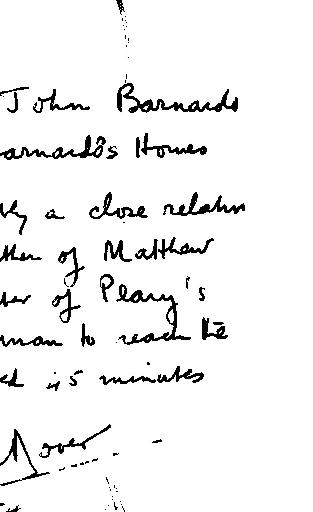 John Barnardo
arnardo's Homes
ly a close relatn
ther of Matthew
ter of Peary's
man to reach the
ed is 5 minutes
Dover